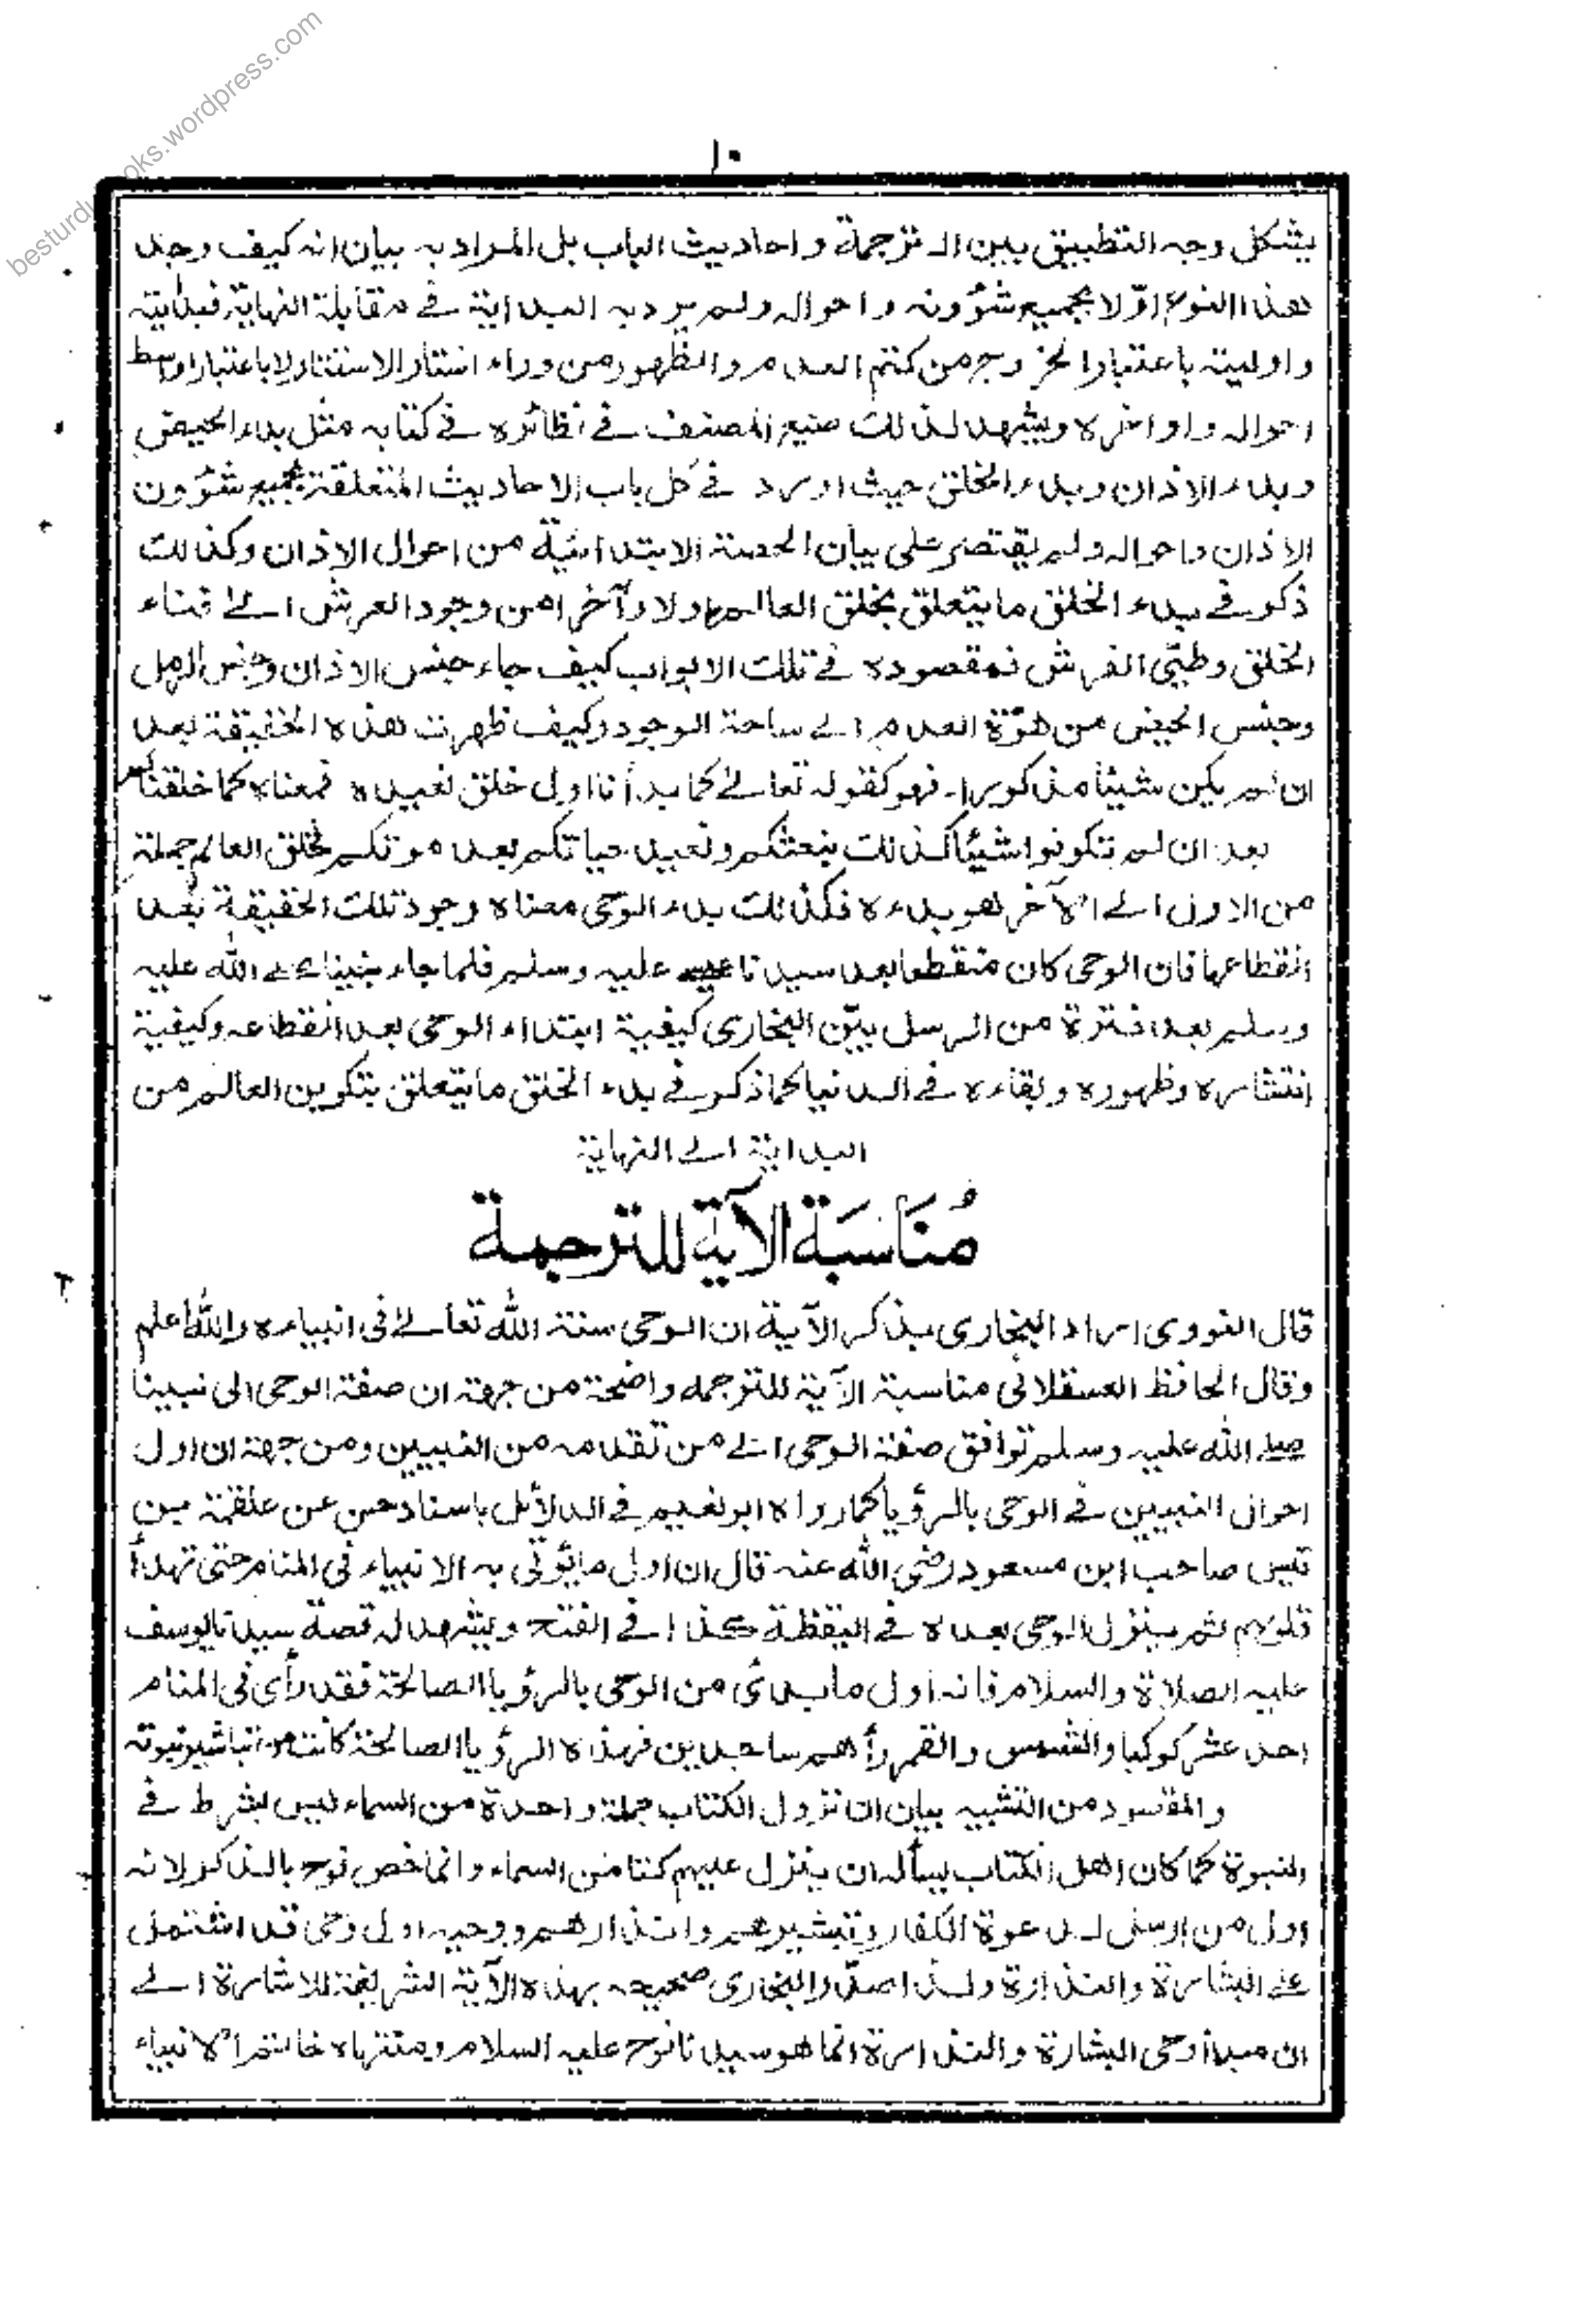 besturdubooks.wordpress.com
١٠
يشكل وجه التطبيق بين الترجمة واحاديث الباب بل المراد به بيان انه كيف وجد
هذا النوع اوّلا بجميع شؤونه واحواله ولم يرد به البداية في مقابلة النهاية فبدايته
واوليته باعتبار الخروج من كتم العدم والظهور من وراء استار الاستتار لا باعتبار اواسط
احواله واواخره ويشهد لذلك صنيع المصنف في نظائره في كتابه مثل بدء الحيض
وبدء الاذان وبدء الخلق حيث اورد في كل باب الاحاديث المتعلقة بجميع شؤون
الاذان واحواله ولم يقتصر على بيان الحصة الابتدائية من احوال الاذان وكذلك
ذكر في بدء الخلق ما يتعلق بخلق العالم اولا وآخرا من وجود العرش الى فناء
الخلق وطيّ الفرش فمقصوده في تلك الابواب كيف جاء جنس الاذان وجنس الرمل
وجنس الحيض من هوّة العدم الى ساحة الوجود وكيف ظهرت هذه الحقيقة بعد
ان لم يكن شيئا مذكورا۔ فهو كقوله تعالى كما بدأنا اول خلق نعيده فمعناه كما خلقناكم
بعد ان لم تكونوا شيئا كذلك نبعثكم ونعيد حياتكم بعد موتكم فخلق العالم جملة
من الاول الى الآخر هو بدءه فكذلك بدء الوحى معناه وجود تلك الحقيقة بعد
انقطاعها فان الوحى كان منقطعا بعد سيدنا عيسى عليه وسلم فلما جاء نبينا صلى الله عليه
وسلم بعد فترة من الرسل بيّن البخارى كيفية ابتداء الوحى بعد انقطاعه وكيفية
انتشاره وظهوره وبقاءه في الدنيا كما ذكر في بدء الخلق ما يتعلق بتكوين العالم من
البداية الى النهاية
مُنَاسَبَة الآية للترجمة
قال النووى اراد البخارى بذكر الآية ان الوحى سنة الله تعالى في انبياءه والله اعلم
وقال الحافظ العسقلانى مناسبة الآية للترجمه واضحة من جهة ان صفة الوحى الى نبينا
صلى الله عليه وسلم توافق صفة الوحى الى من تقدمه من النبيين ومن جهة ان اول
احوال النبيين في الوحى بالرؤيا كما رواه ابو نعيم في الدلائل باسناد حسن عن علقمة بن
قيس صاحب ابن مسعود رضي الله عنه قال ان اول ما يؤتى به الانبياء في المنام حتى تهدأ
قلوبهم ثم ينزل الوحى بعده في اليقظة كذا في الفتح ويشهد له قصة سيدنا يوسف
عليه الصلاة والسلام فانه اول ما بدئ من الوحى بالرؤيا الصالحة فقد رأى في المنام
احد عشر كوكبا والشمس والقمر رأهم ساجدين فهذه الرؤيا الصالحة كانت من تباشير نبوته
والمقصود من التشبيه بيان ان نزول الكتاب جملة واحدة من السماء ليس بشرط في
النبوة كما كان اهل الكتاب يسأله ان ينزل عليهم كتابا من السماء وانما خص نوح بالذكر لانه
اول من ارسل لدعوة الكفار وتبشيرهم وانذارهم ووحيه اول وحى قد اشتمل
على البشارة والنذارة ولذا صدّر البخارى صحيحه بهذه الآية الشريفة للاشارة الى
ان مبدأ وحى البشارة والنذارة انما هو سيدنا نوح عليه السلام ومنتهاه خاتم الانبياء